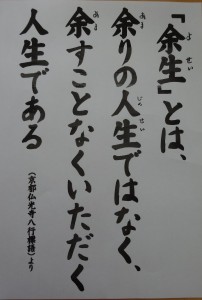 「余生」とは、
余りの人生ではなく、
余すことなくいただく
人生である
（京都仏光寺八行標語）より